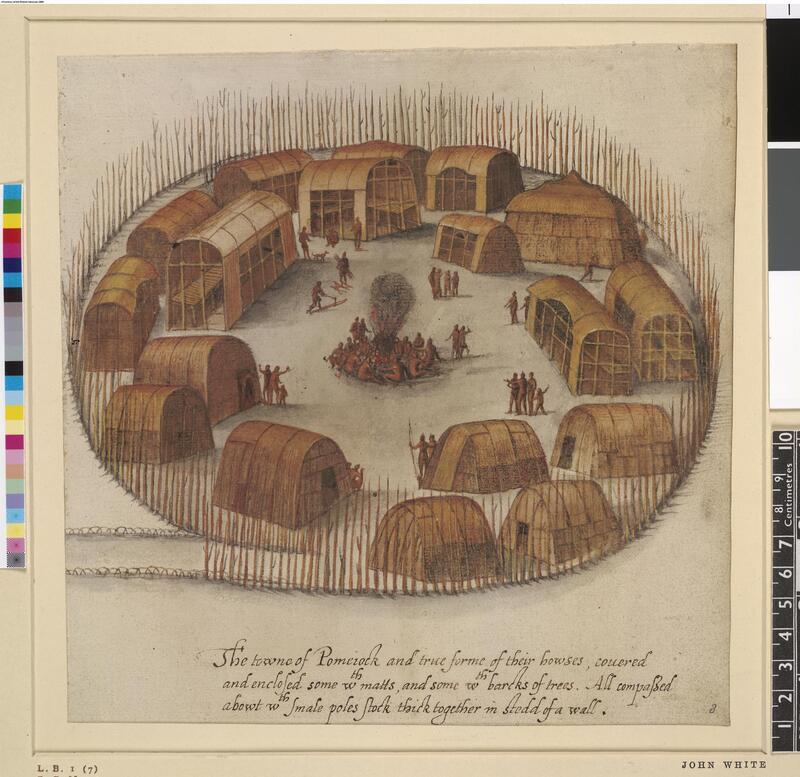 The towne of Pomeiock and true forme of their howses, couered
and enclosed some wth matts, and some wth barcks of trees. All compassed
abowt wth smale poles stock thick together in stedd of a wall.
8
L. B. 1 (7)
JOHN WHITE
Centimetres
1 2 3 4 5 6 7 8 9 10